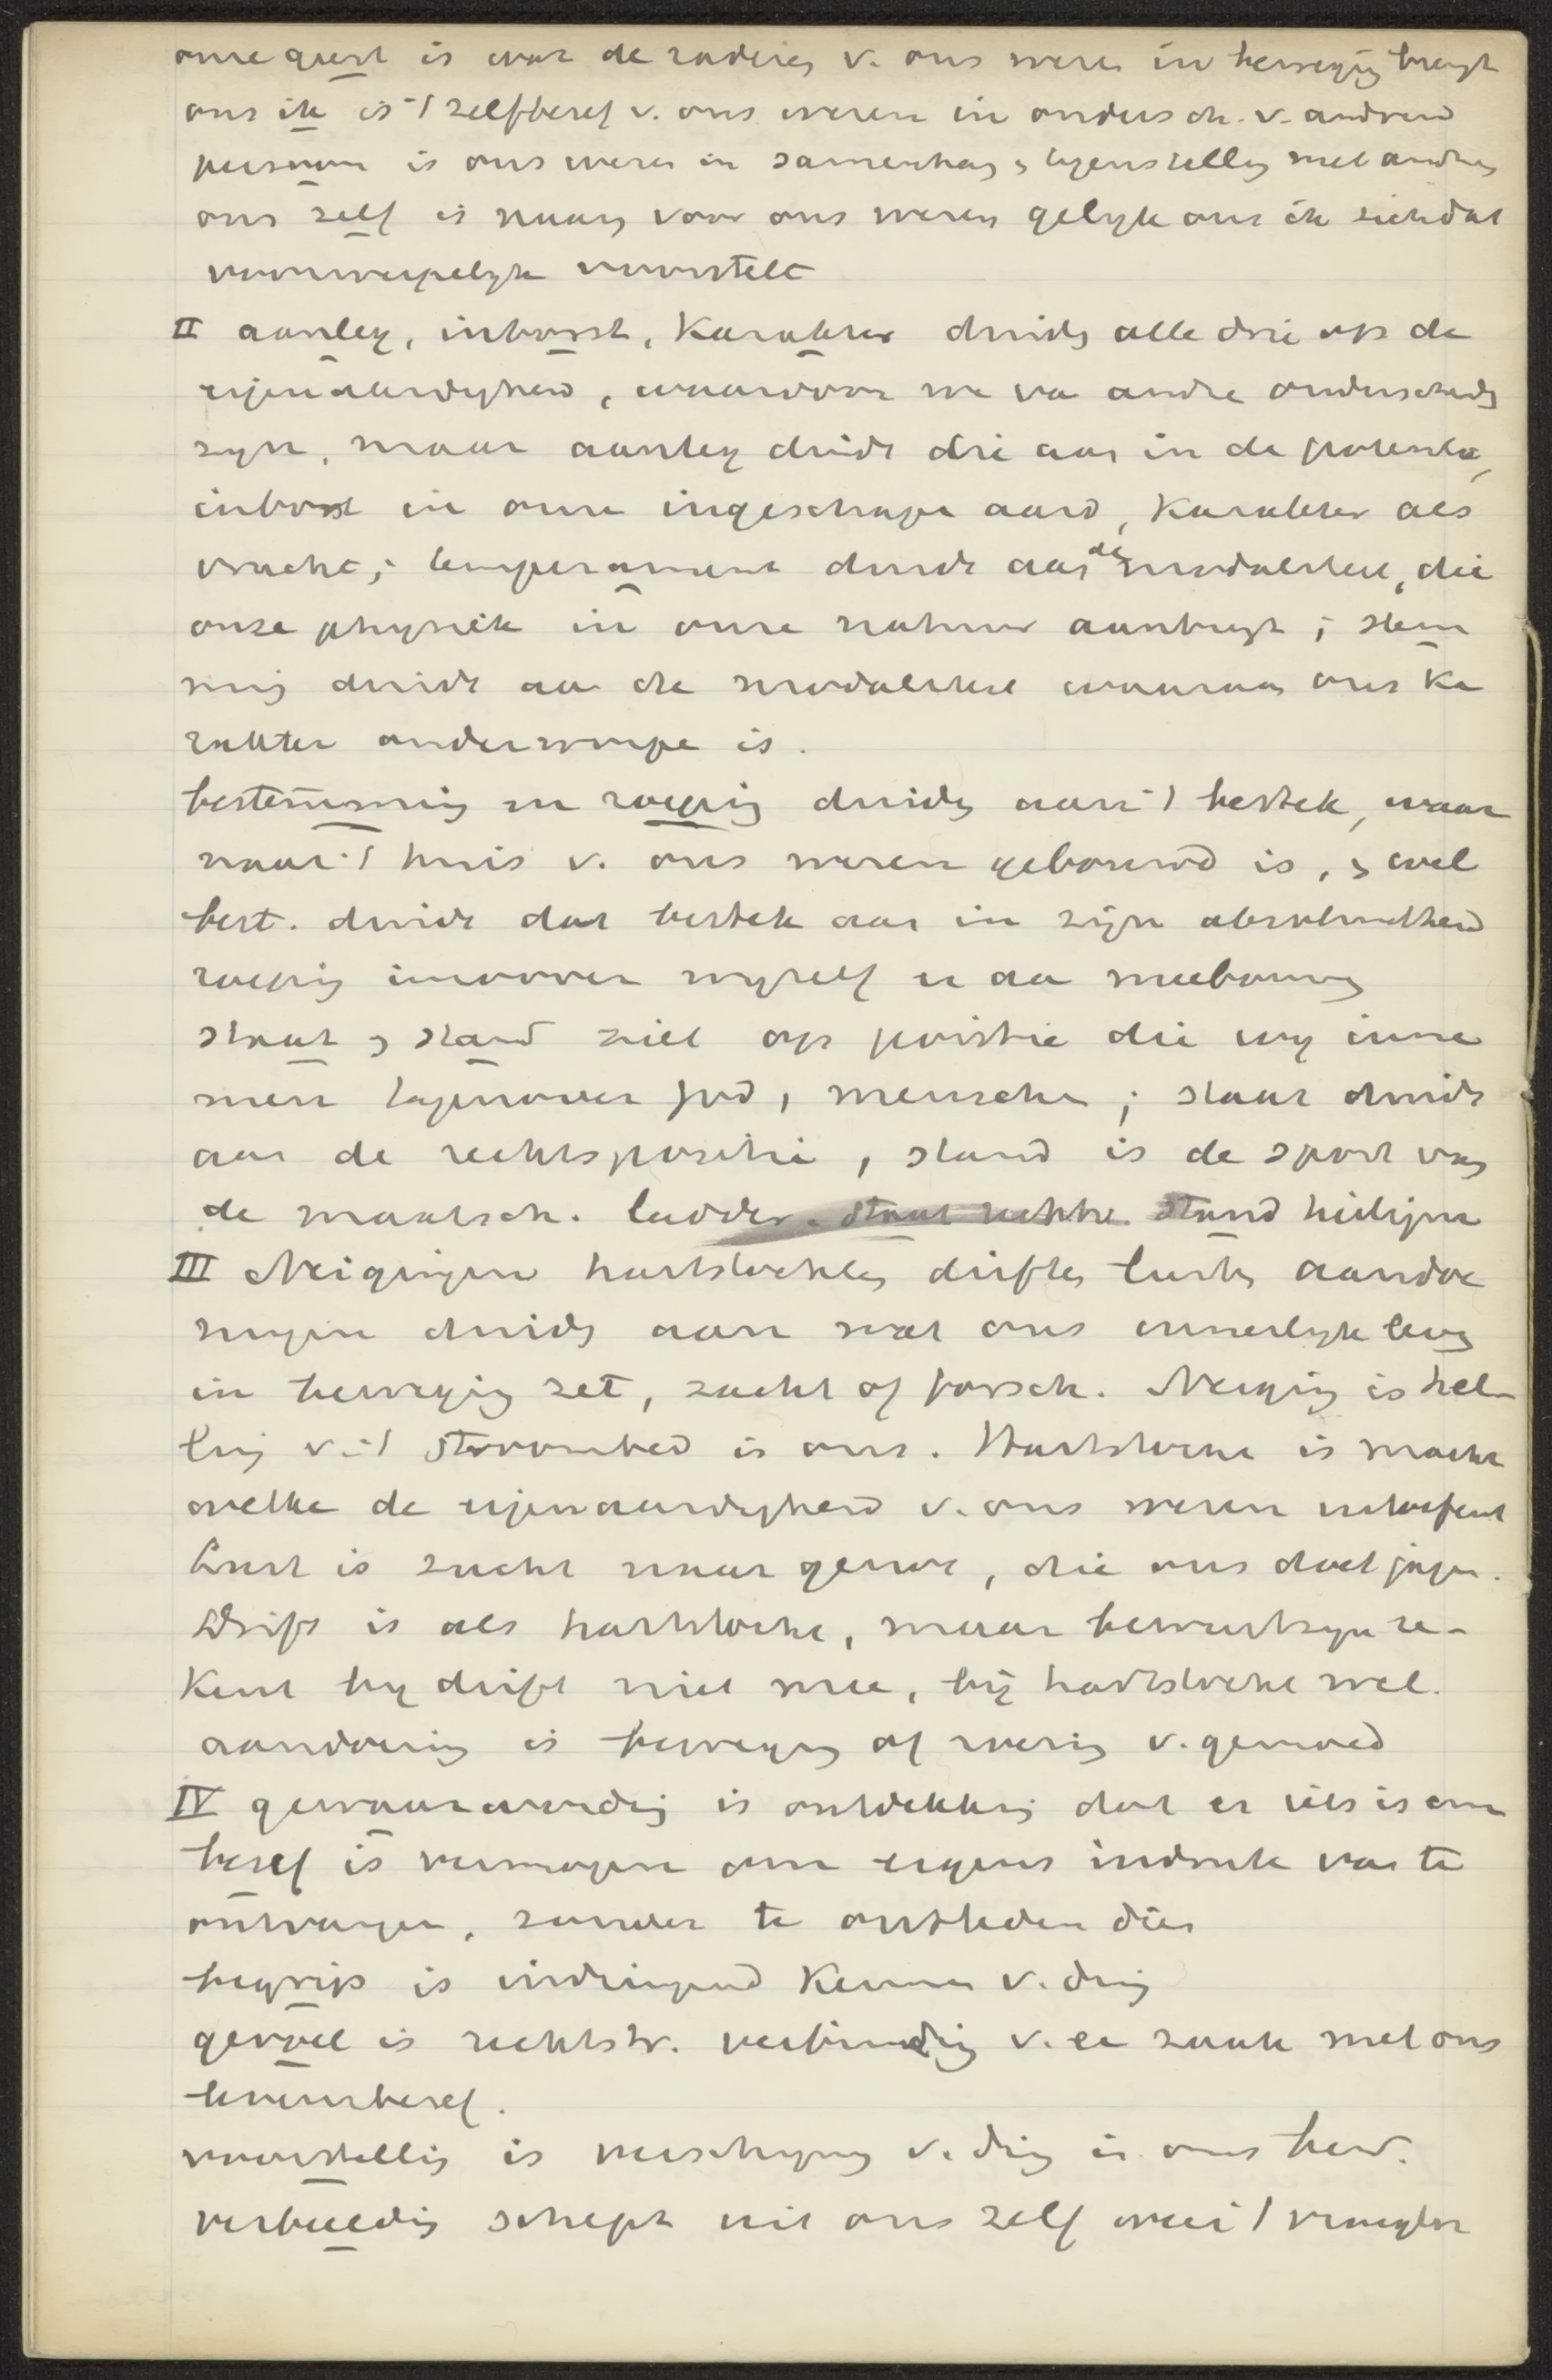 onze geest is wat de raderen v. ons wezen in beweging brengt
ons ik is 't zelfbesef v. ons wezen in ondersch. v. andren
persoon is ons wezen in samenhang & tegenstelling met andren
ons zelf is naam voor ons wezen gelijk ons ik zich dat
voorwerpelijk voorstelt
II aanleg, inborst, karakter duidt alle drie op de
eigenaardigheid, waardoor we va andre onderscheidn
zijn, maar aanleg duidt die aan in de potentie,
inborst in onze ingeschape aard, karakter als
vrucht; temperament duidt aan de modaliteit, die
onze physiek in onze natuur aanbrengt; stem
ming duidt aa de modaliteit waaraan ons ka
rakter onderworpe is.
bestemming en roeping duidn aan 't bestek, waar
naar 't huis v. ons wezen gebouwd is, & wel
best. duidt dat bestek aan in zijn absoluutheid
roeping inzoover mijzelf er aa meebouwn
staat & stand ziet op positie die wij inne
men tegenover God, menschen; staat duidt
aan de rechtspositie, stand is de sport van
de maatsch. ladder. staat rechte stand heiligen
III Neigingen hartstochten driften lusten aandoe
ningen duidn aan wat ons innerlijk leven
in beweging zet, zacht of forsch. Neiging is hel-
ling v. 't stroombed is ons. Hartstocht is macht
welke de eigenaardigheid v. ons wezen uitoefent
Lust is zucht naar genot, die ons doet jagen.
Drift is als hartstocht, maar bewustzijn re-
kent bij drift niet mee, bij hartstocht wel.
aandoening is beweging of roering v. gemoed
IV gewaarwording is ontdekking dat er iets is om
besef is vermogen om ergens indruk van te
ontvangen, zonder te ontleden dien
begrip is indringend kennen v. ding
gevoel is rechtstr. verbinding v. ee zaak met ons
levensbesef.
voorstelling is verschijning v. ding in ons bew.
verbeelding schept uit ons zelf